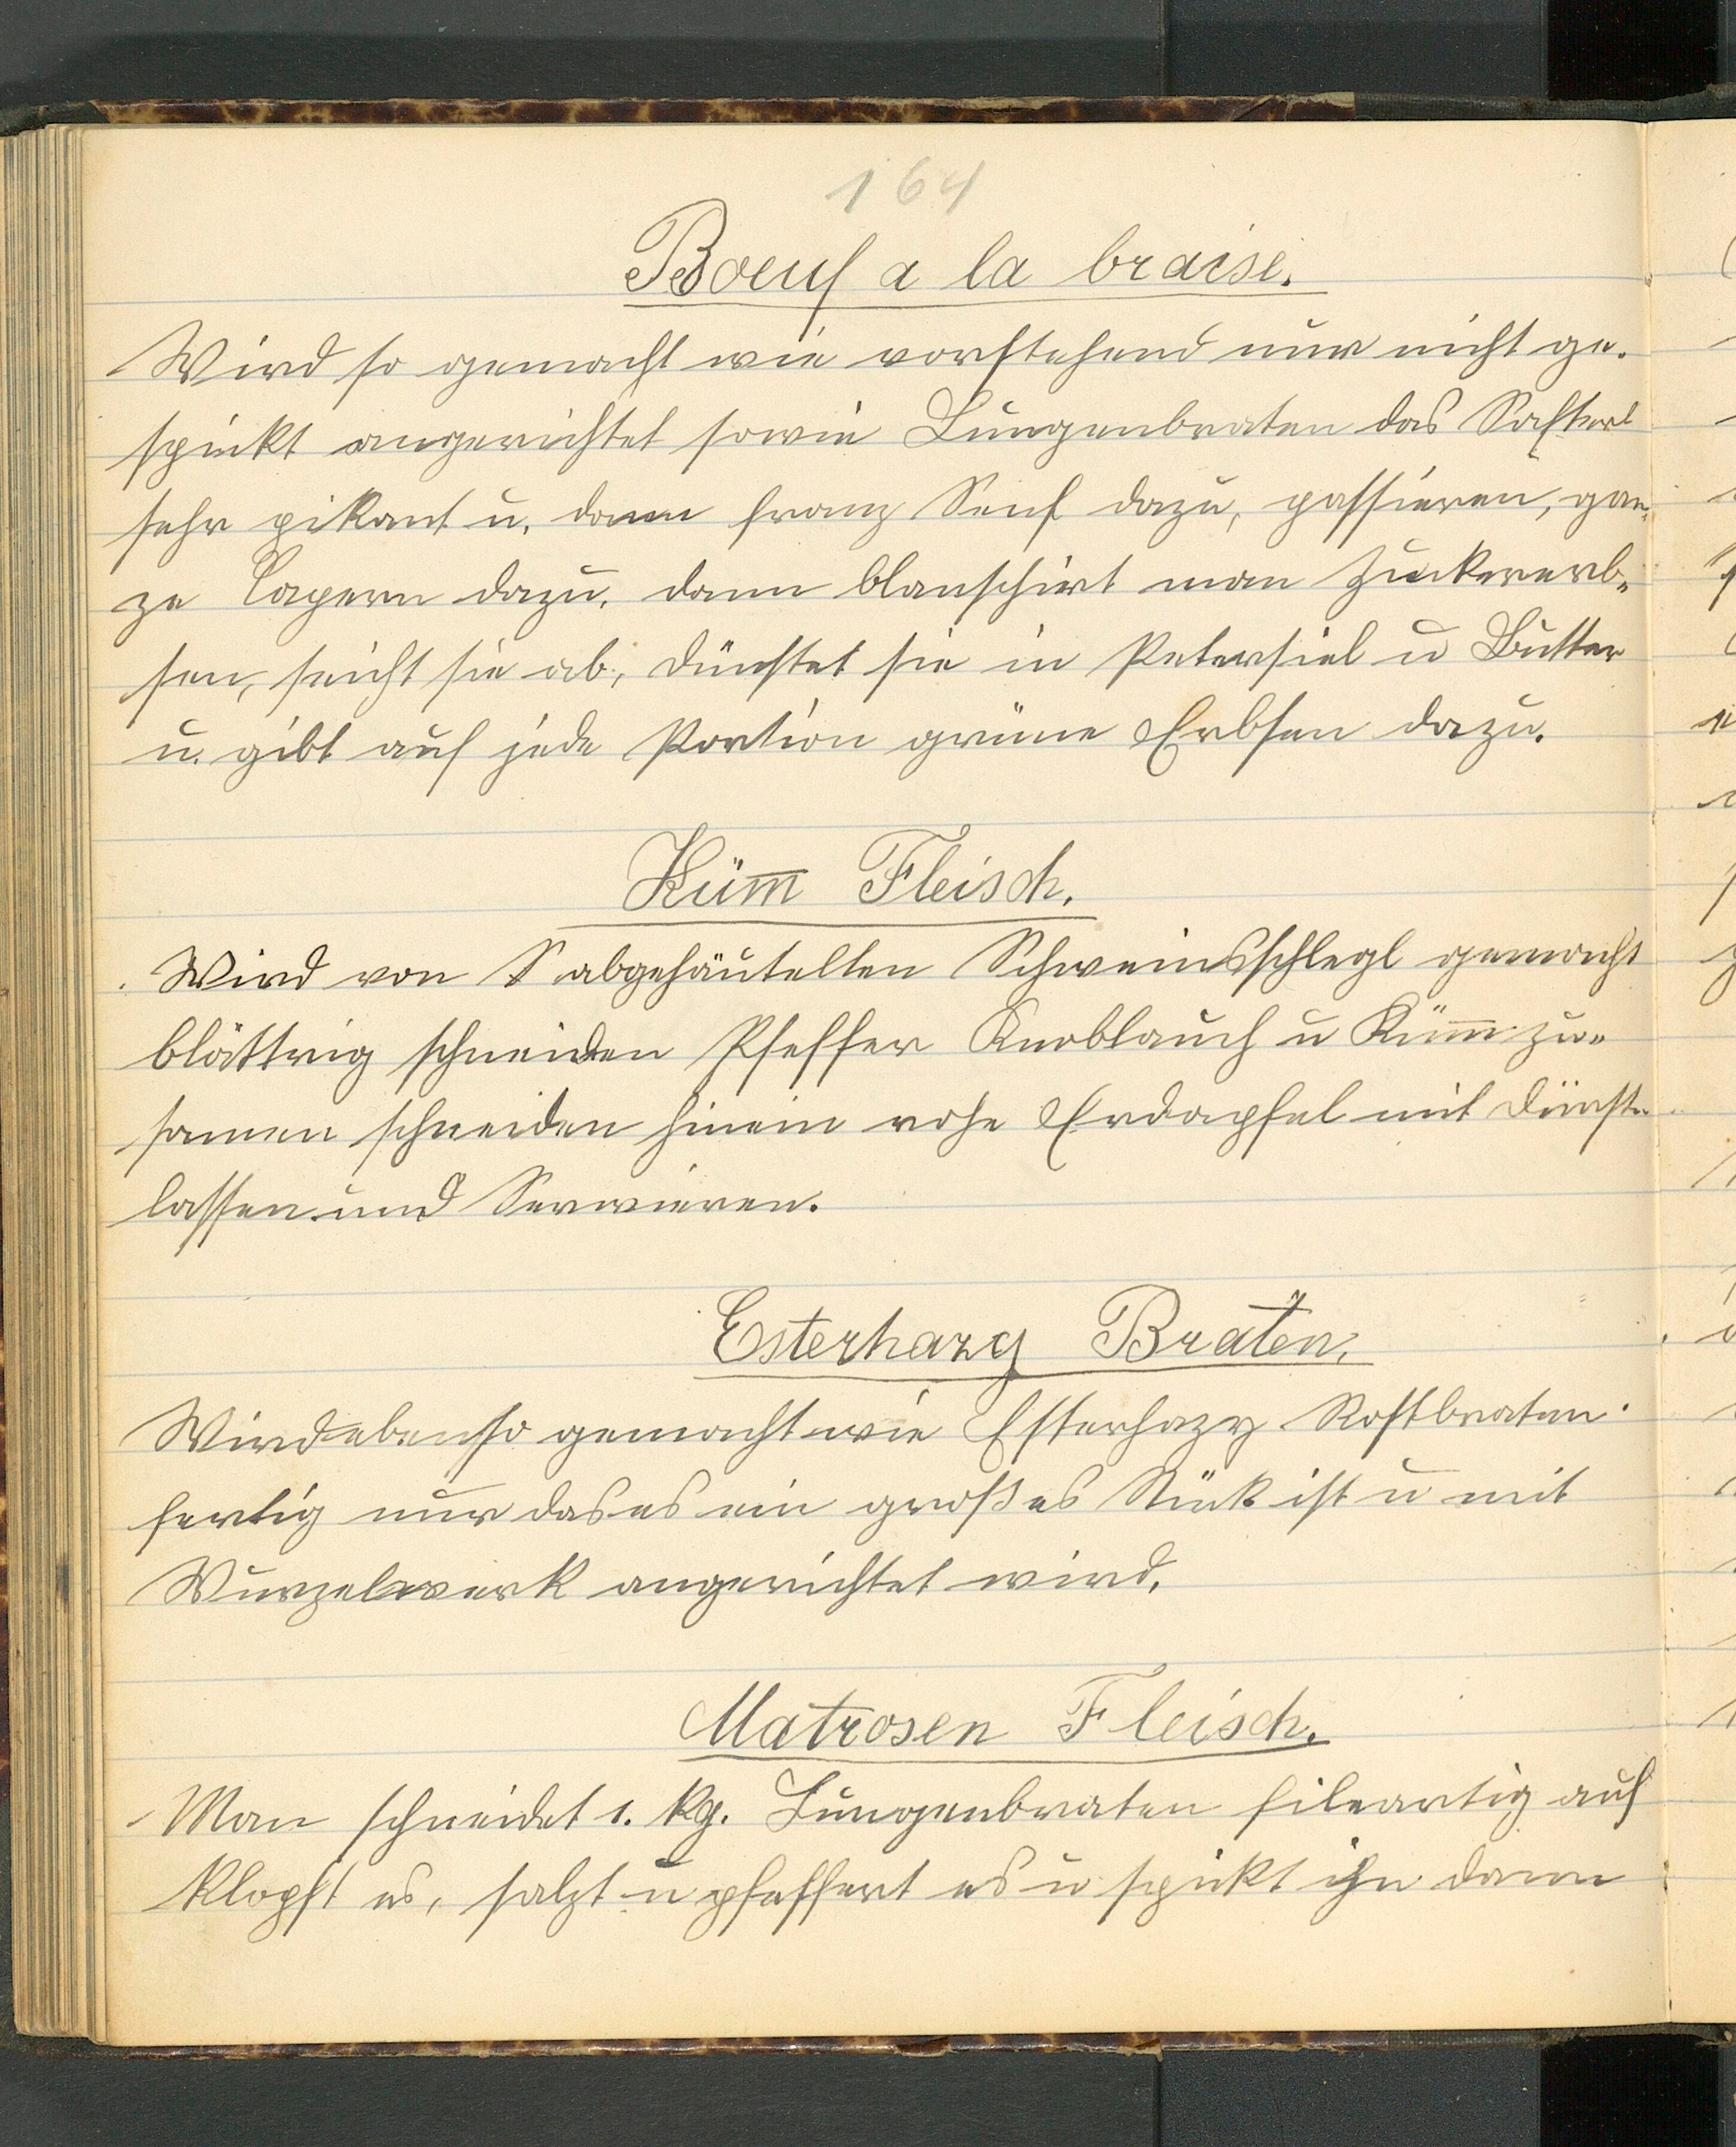 164
Boeuf a la braise.
Wird so gemacht wie vorstehend nur nicht ge-
spickt angerichtet sowie Lungenbraten das Safterl
sehr pikant u. dann franz Senf dazu, passieren, gan-
ze Capern dazu. dann blanschirt man Zuckererb-
sen, seicht sie ab, dünstet sie in Petersiel u Butter
u. gibt auf jede Portion grüne Erbsen dazu.
Küm̅ Fleisch.
Wird von abgehäutelten Schweinsschlegl gemacht
blättrig schneiden Pfeffer Knoblauch u Küm̅ zu-
samen schneiden hinein rohe Erdapfel mit dünst-
lassen und Servieren.
Esterhazy Braten.
Wird ebenso gemacht wie Esterhazy Rostbraten
fertig nur das es ein großes Stück ist u mit
Wurzelwerk angerichtet wird.
Matrosen Fleisch.
Man schneidet 1. kg. Lungenbraten fileartig auf
klopft es, salzt u pfeffert es u spickt ihn dann